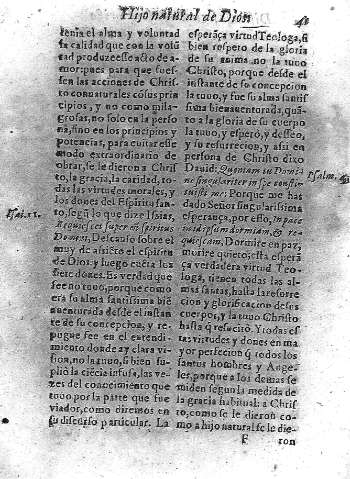 Hijo natural de Dios
tenia el alma y voluntad
ta calidad que con la volũ
tad produzesse acto de a-
mor: pues para que fues-
sen las acciones de Chris-
to connaturales cõ sus prin
cipios, y no como mila-
grosas, no solo en la perso
na, sino en los principios y
potencias, para euitar esse
modo extraordinario de
obrar, se le dieron a Chris
to, la gracia, la caridad, to-
das las virtudes morales, y
los dones del Espiritu san-
to, segũ lo que dize Isaias,
Requiescet super eũ spiritus
Domini, Descanso sobre el
muy de assiento el espiritu
de Dios: y luego cuẽta sus
siete dones. Es verdad que
fee no tuuo, porque como
era su alma santissima biẽ
auenturada desde el instan
te de su concepcion, y re-
pugne fee en el entendi-
miento donde ay clara vi-
sion, no la tuuo, si bien su-
plio la ciẽcia infusa, las ve-
zes del conocimiento que
tuuo por la parte que fue
viador, como diremos en
su discurso particular. La
Psal. 11.
esperãça virtud Teologa, si
bien respeto de la gloria
de su anima no la tuuo
Christo, porque desde el
instante de su concepcion
la tuuo, y fue su alma santis
sima bienauenturada, quã-
to a la gloria de su cuerpo
la tuuo, y esperò, y desseo,
y su resurreccion, y assi en
persona de Christo dixo
Dauid: Quoniam tu Domi-
ne singulariter in spe consti-
tuisti me: Porque me has
dado Señor singularissima
esperança, por esso, In pace
in idipsum dormiam, & re-
quiescam, Dormire en paz,
morire quieto: esta esperã
ça verdadera virtud Teo-
loga, tienen todas las al-
mas santas, hasta la resurre
cion y glorificacion de sus
cuerpos, y la tuuo Christo
hasta q̃ resucitò. Y todas es
tas virtudes y dones en ma
yor perfecion q̃ todos los
santos hombres y Ange-
les, porque a los demas se
miden segun la medida de
la gracia habitual: a Chris
to, como se le dieron co-
mo a hijo natural se le die-
Psalm.
F
ron